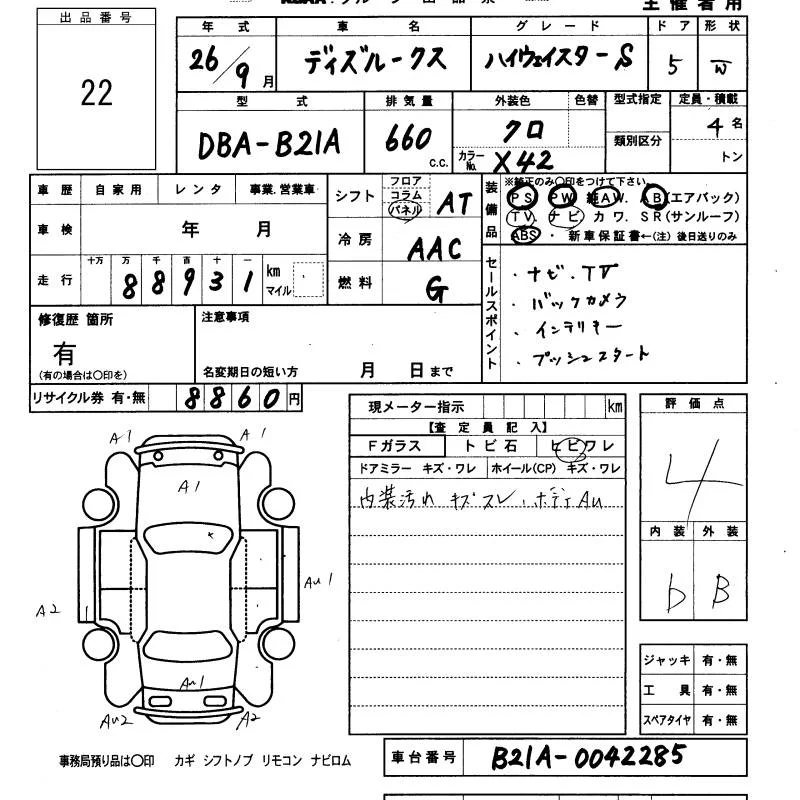 出品番号
22
主催者用
年式 車名 グレード ドア 形状
26/9月 ディズルークス ハイウェイスターS 5 W
型式 排気量 外装色 色替 型式指定 定員・積載
DBA-B21A 660 c.c. クロ 類別区分 4名
カラーNo. X42 トン
車歴 自家用 レンタ 事業.営業車
車検 年 月
走行 十万 万 千 百 十 一
88931 km マイル
シフト フロア コラム パネル AT
冷房 AAC
燃料 G
装備品 ※純正のみ○印をつけて下さい。
PS PW 純AW. AB(エアバック)
TV. ナビ カワ. SR(サンルーフ)
ABS ・ 新車保証書←(注) 後日送りのみ
セールスポイント
・ナビ.TV
・バックカメラ
・インテリキー
・プッシュスタート
修復歴 箇所
有
(有の場合は○印を)
注意事項
名変期日の短い方 月 日まで
リサイクル券 有・無 8860円
現メーター指示 km
【査定員記入】
Fガラス トビ石 ヒビワレ
ドアミラー キズ・ワレ ホイール(CP) キズ・ワレ
内装汚れ キズスレ.ボディAu
評価点
4
内装 外装
b B
A1 A1
A1
A2 Au1
Au1
Au2 A2
ジャッキ 有・無
工具 有・無
スペアタイヤ 有・無
事務局預り品は○印 カギ シフトノブ リモコン ナビロム
車台番号 B21A-0042285